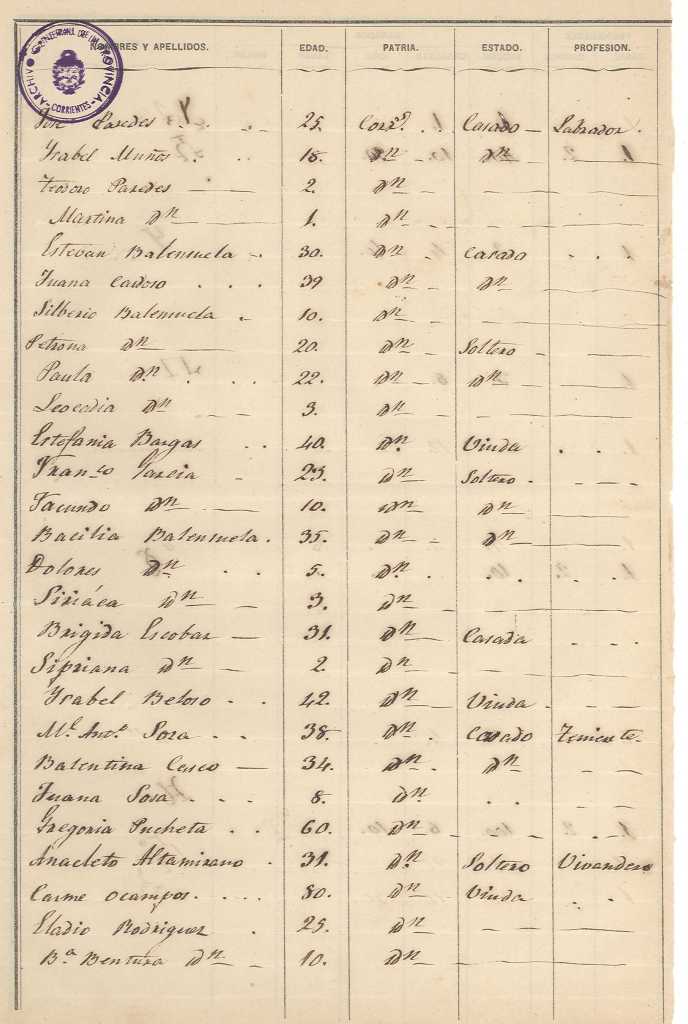 ARCHIVO GENERAL DE LA PROVINCIA CORRIENTES
NOMBRES Y APELLIDOS. EDAD. PATRIA. ESTADO. PROFESION.
José Paredes 25. Corrs. Casado Labrador.
Ysabel Muños 18. Dn Dn
Teodoro Paredes 2. Dn
Martina Dn 1. Dn
Estevan Balensuela 30. Dn Casado
Juana Cardoso 39 Dn Dn
Silberio Balensuela 10. Dn
Petrona Dn 20. Dn Soltero
Paula Dn 22. Dn Dn
Leocadia Dn 3. Dn
Estefania Bargas 40. Dn Viuda
Franco Garcia 23. Dn Soltero
Facundo Dn 10. Dn Dn
Bacilia Balensuela. 35. Dn Dn
Dolores Dn 5. Dn
Siriáca Dn 3. Dn
Brigida Escobar 31. Dn Casada
Sipriana Dn 2. Dn
Ysabel Beloso 42. Dn Viuda
Ml. Anto. Sosa 38. Dn Casado Teniente
Balentina Cesco 34. Dn Dn
Juana Sosa 8. Dn
Gregoria Pucheta 60. Dn
Anacleto Altamirano 31. Dn Soltero Vivandero
Carme Ocampos 80. Dn Viuda
Eladio Rodriguez 25. Dn
Ba Bentura Dn 10. Dn